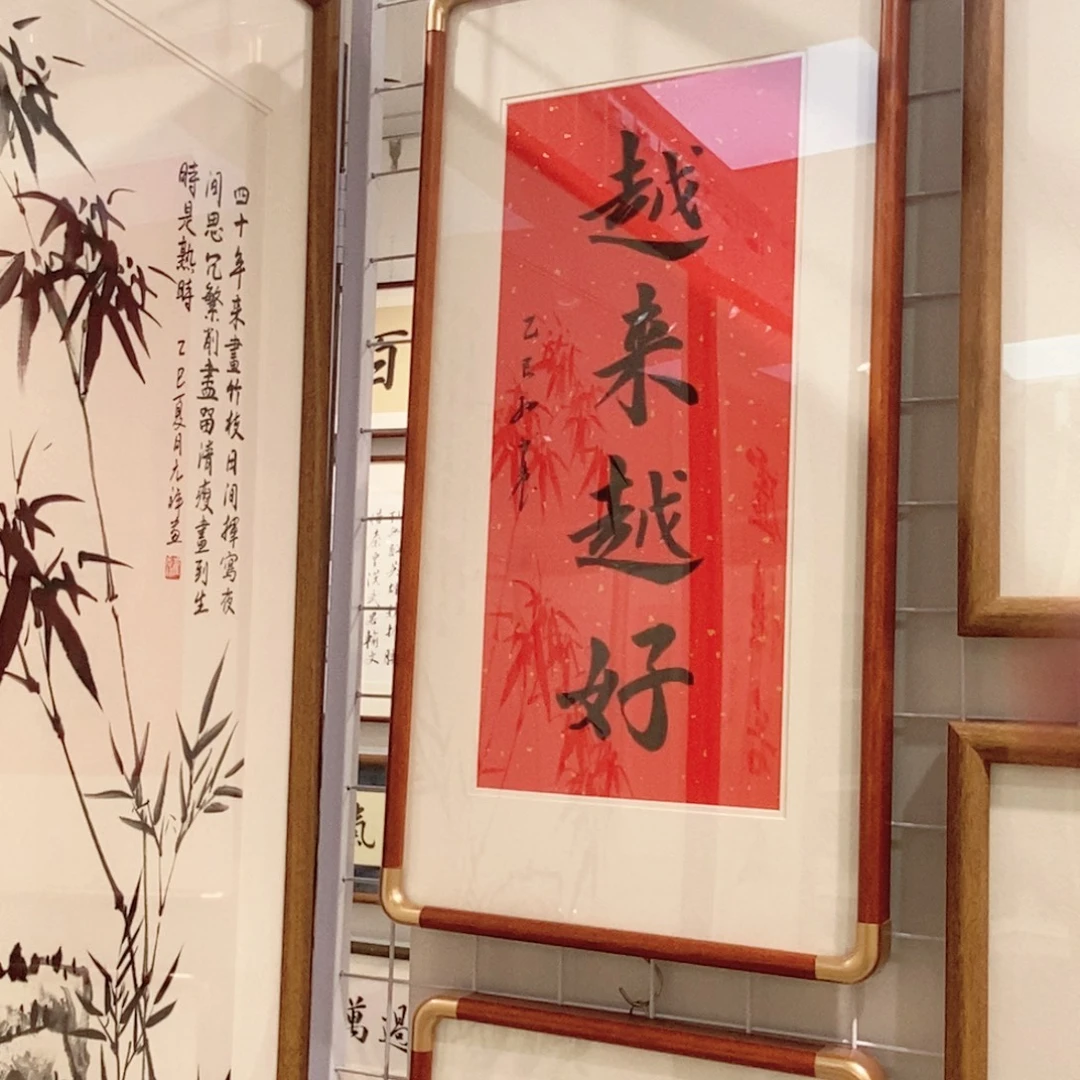 越来越好
乙巳
四十年来畫竹枝日间揮寫夜
间思冗繁削盡留清瘦畫到生
時是熟時 乙巳夏月
百
氣
萬過